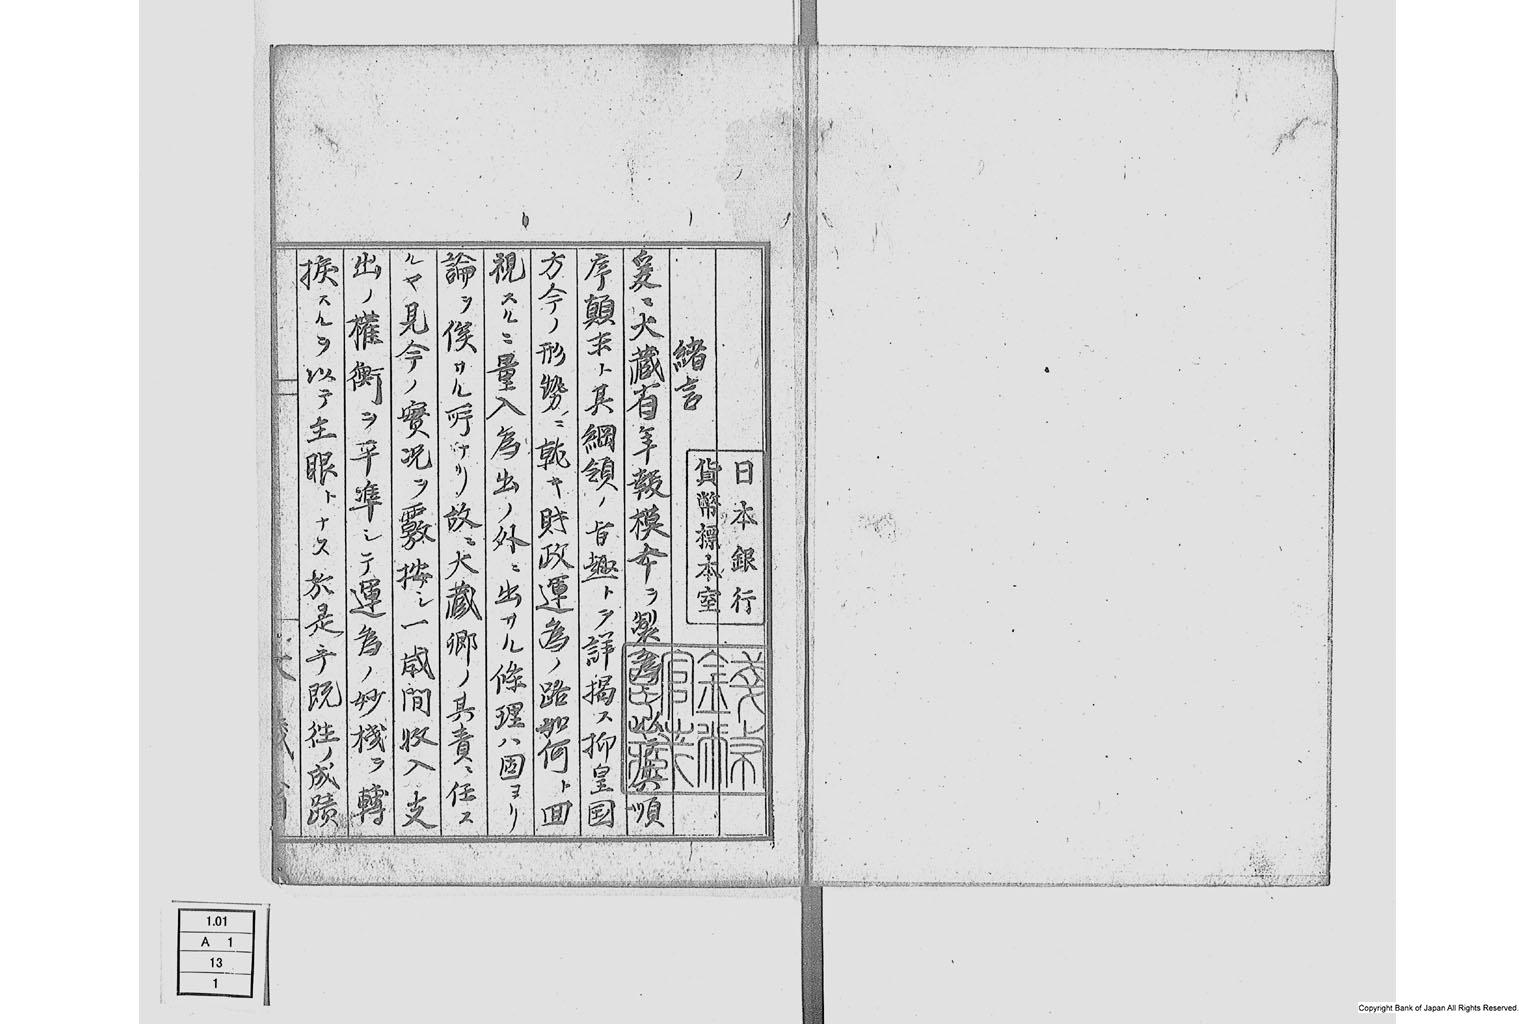 緒言
日本銀行
貨幣標本室
爰ニ大蔵省年報模本ヲ製為シ以テ順
序顛末ト其綱領ノ旨趣トヲ詳掲ス抑皇国
方今ノ形勢ニ就キ財政運為ノ路如何ト回
視スルニ量入為出ノ外ニ出サル條理ハ固ヨリ
論ヲ俟サル所ナリ故ニ大蔵卿ノ其責ニ任ス
ルヤ見今ノ實况ヲ覈按シ一歳間收入支
出ノ權衡ヲ平準シテ運為ノ妙機ヲ轉
捩スルヲ以テ主眼トナス於是乎既往ノ成蹟
大蔵省
1.01
A 1
13
1
Copyright Bank of Japan All Rights Reserved.